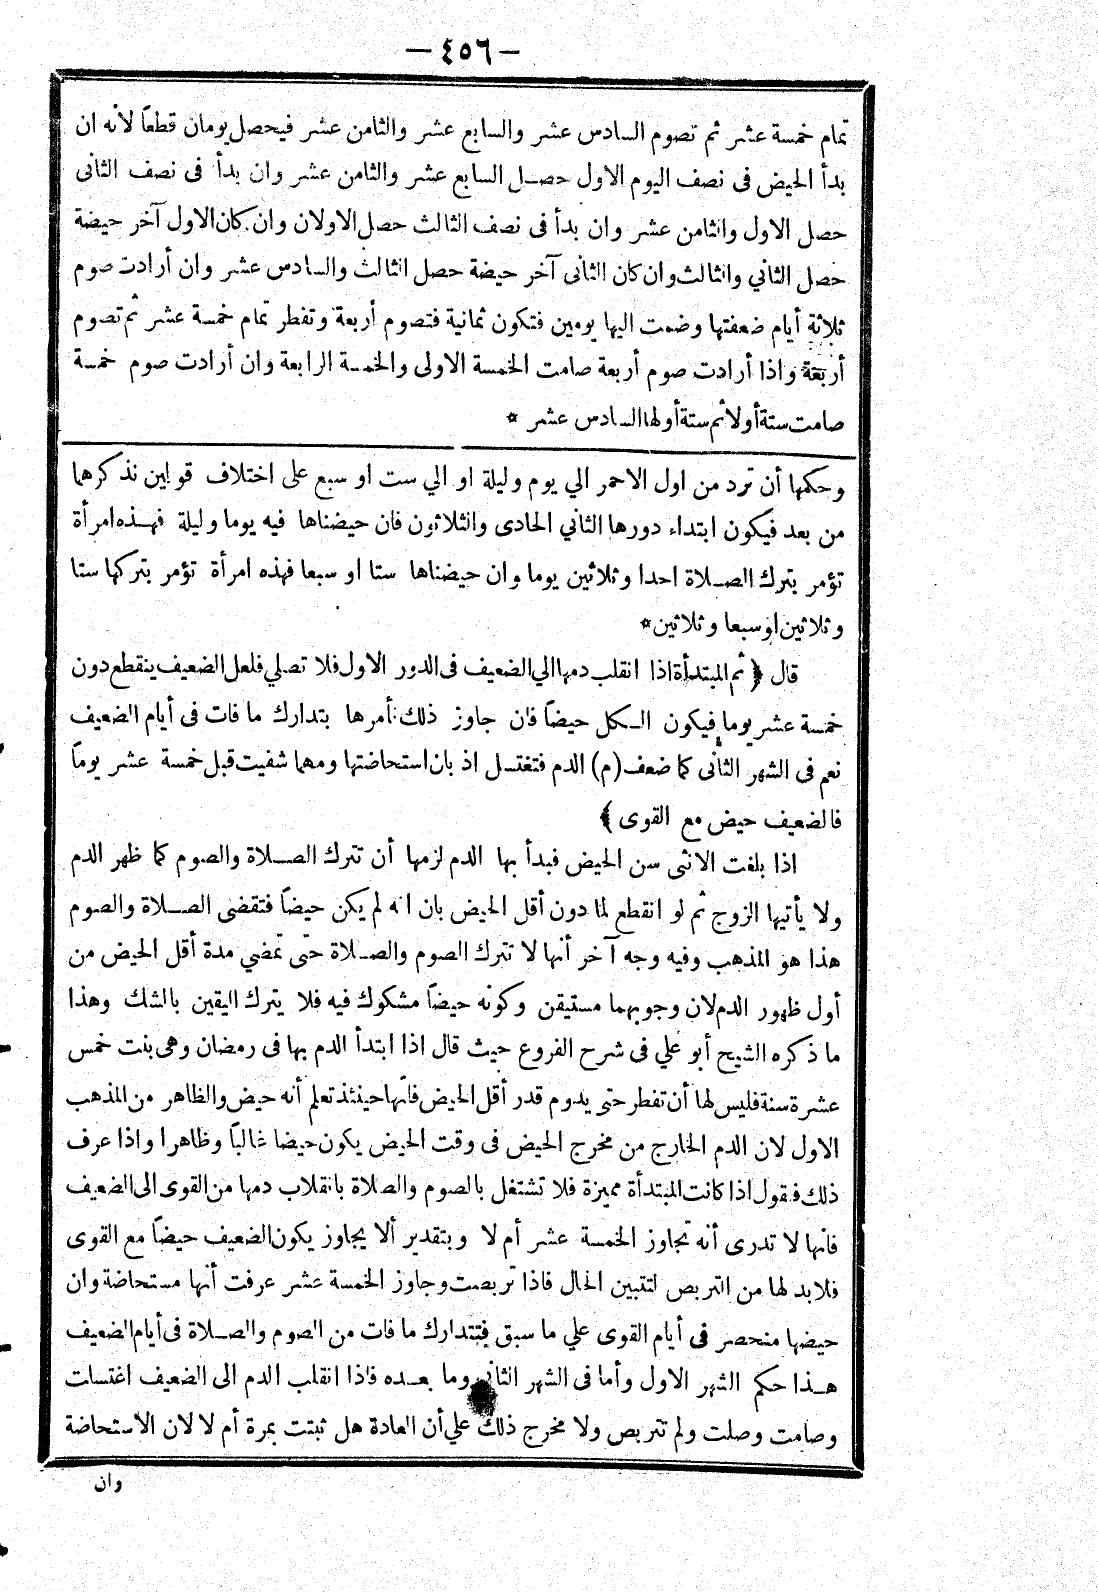 — ٤٥٦ —
تمام خمسة عشر ثم تصوم السادس عشر والسابع عشر والثامن عشر فيحصل يومان قطعاً لانه ان
بدأ الحيض فى نصف اليوم الاول حصل السابع عشر والثامن عشر وان بدأ فى نصف الثانى
حصل الاول والثامن عشر وان بدأ فى نصف الثالث حصل الاولان وان كان الاول آخر حيضة
حصل الثاني والثالث وان كان الثانى آخر حيضة حصل الثالث والسادس عشر وان أرادت صوم
ثلاثة أيام ضعفتها وضمت اليها يومين فتكون ثمانية فتصوم أربعة وتفطر تمام خمسة عشر ثم تصوم
أربعة واذا أرادت صوم أربعة صامت الخمسة الاولى والخمسة الرابعة وان أرادت صوم خمسة
صامت ستة أولا ثم ستة أولها السادس عشر *
وحكمها أن ترد من اول الاحمر الي يوم وليلة او الي ست او سبع على اختلاف قولين نذكرهما
من بعد فيكون ابتداء دورها الثاني الحادى والثلاثون فان حيضناها فيه يوما وليلة فهذه امرأة
تؤمر بترك الصلاة احدا وثلاثين يوما وان حيضناها ستا او سبعا فهذه امرأة تؤمر بتركها ستا
وثلاثين او سبعا وثلاثين *
قال ﴿ ثم المبتدأة اذا انقلب دمها الي الضعيف فى الدور الاول فلا تصلي فلعل الضعيف ينقطع دون
خمسة عشر يوما فيكون الكل حيضاً فان جاوز ذلك أمرها بتدارك ما فات فى أيام الضعيف
نعم فى الشهر الثانى كما ضعف (م) الدم فتغتسل اذ بان استحاضتها ومهما شفيت قبل خمسة عشر يوماً
فالضعيف حيض مع القوى ﴾
اذا بلغت الانثى سن الحيض فبدأ بها الدم لزمها أن تترك الصلاة والصوم كما ظهر الدم
ولا يأتيها الزوج ثم لو انقطع لما دون أقل الحيض بان انه لم يكن حيضاً فتقضى الصلاة والصوم
هذا هو المذهب وفيه وجه آخر أنها لا تترك الصوم والصلاة حتى تمضي مدة أقل الحيض من
أول ظهور الدم لان وجوبهما مستيقن وكونه حيضاً مشكوك فيه فلا يترك اليقين بالشك وهذا
ما ذكره الشيخ أبو علي فى شرح الفروع حيث قال اذا ابتدأ الدم بها فى رمضان وهى بنت خمس
عشرة سنة فليس لها أن تفطر حتى يدوم قدر أقل الحيض فانها حينئذ تعلم أنه حيض والظاهر من المذهب
الاول لان الدم الخارج من مخرج الحيض فى وقت الحيض يكون حيضا غالباً وظاهرا واذا عرف
ذلك فنقول اذا كانت المبتدأة مميزة فلا تشتغل بالصوم والصلاة بانقلاب دمها من القوى الى الضعيف
فانها لا تدرى أنه تجاوز الخمسة عشر أم لا وبتقدير ألا يجاوز يكون الضعيف حيضاً مع القوى
فلابد لها من التربص لتتبين الحال فاذا تربصت وجاوز الخمسة عشر عرفت أنها مستحاضة وان
حيضها منحصر فى أيام القوى علي ما سبق فتتدارك ما فات من الصوم والصلاة فى أيام الضعيف
هذا حكم الشهر الاول وأما فى الشهر الثانى وما بعده فاذا انقلب الدم الى الضعيف اغتسلت
وصامت وصلت ولم تتربص ولا مخرج ذلك علي أن العادة هل ثبتت بمرة أم لا لان الاستحاضة
وان